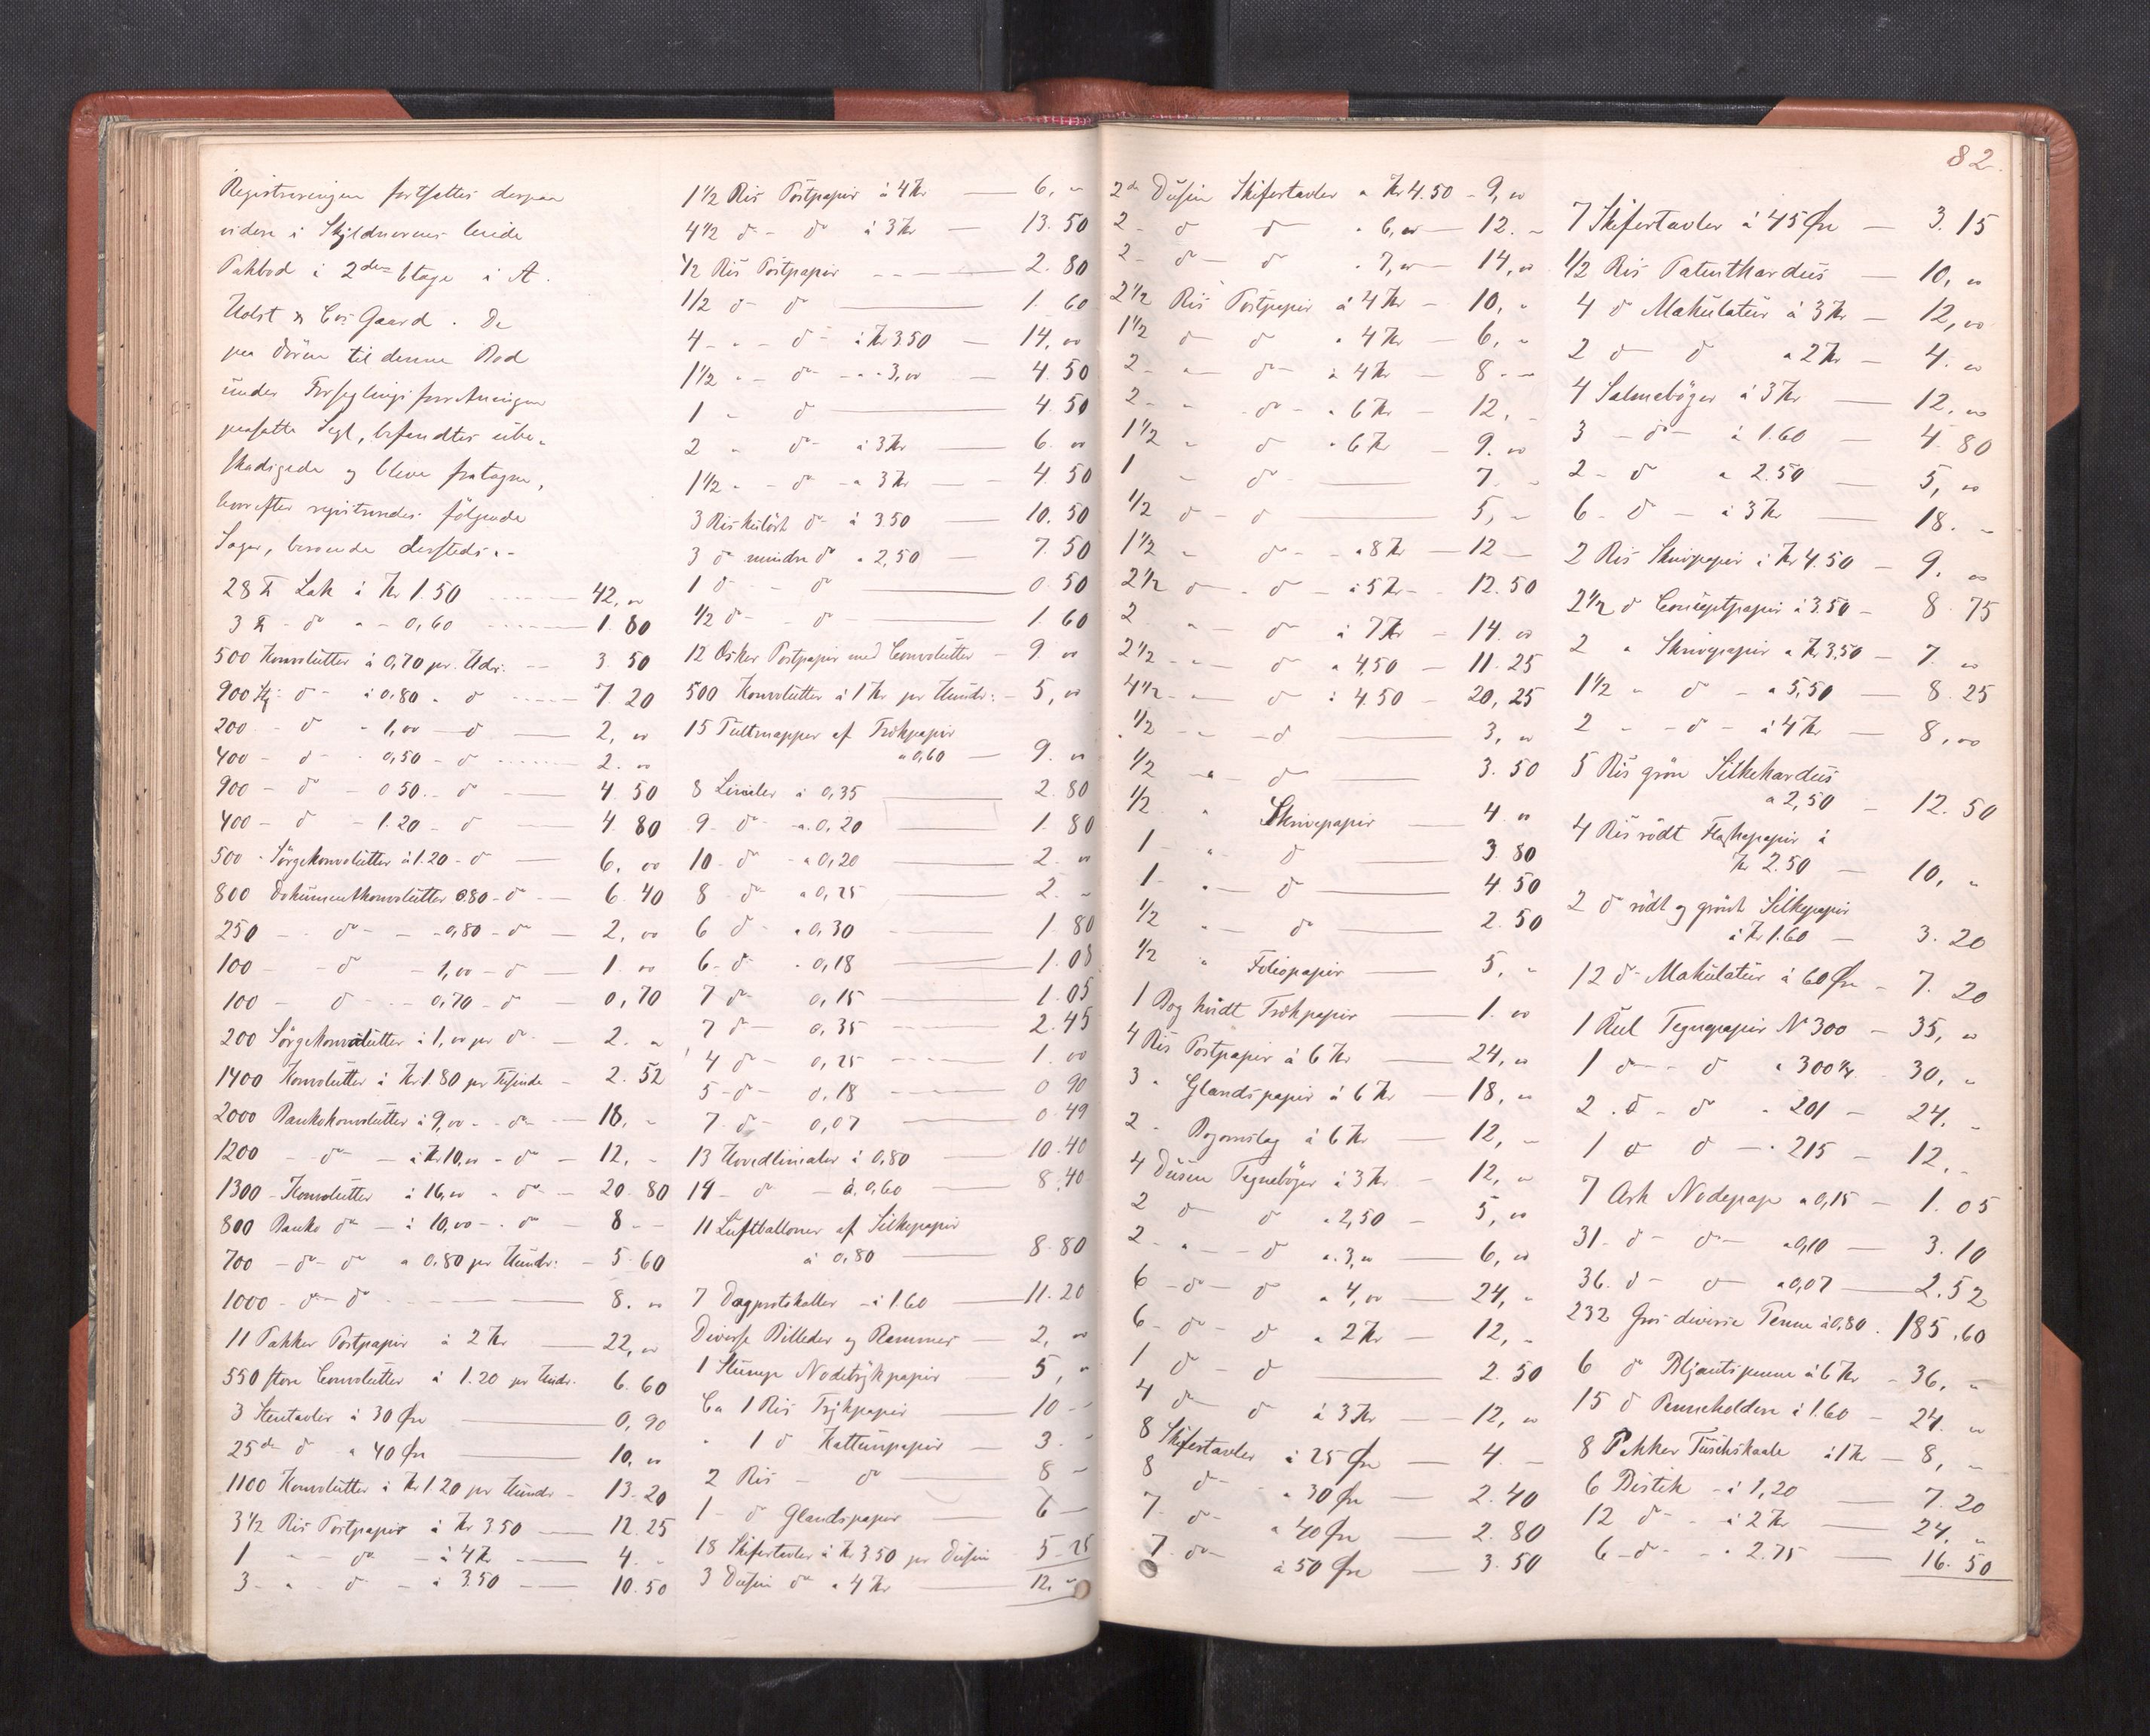 Registreringen fortsattes derpaa
videre i Skyldnerens leiede
Pakbod i 2den Etage i A.
Holst & Co's Gaard. De
paa Dören til denne Bod
under Forseglingsforretningen
paasatte Segl, befandtes ube-
skadigede og bleve fratagne,
hvorefter registreredes følgende
Sager, beroende dersteds:-
28 ℔ Lak à Kr 1.50 42,00
3 ℔ - do - - 0,60 1.80
500 Konvolutter à 0,70 pr. Hdr. 3.50
900 Stk: do - à 0.80 - do 7.20
200 - do - 1,00 - do 2,00
400 - do - 0,50 - do 2.00
900 - do - 0.50 - do 4.50
400 - do - 1.20 - do 4.80
500 - Sörgekonvolutter à 1.20 - do 6,00
800 Dokumentkonvolutter 0.80 - do 6.40
250 - do - - 0,80 - do 2,00
100 - do - 1,00 - do 1.00
100 - do - 0,70 - do 0,70
200 Sörgekonvolutter à 1,00 pr do 2.00
1400 Konvolutter à Kr 1.80 pr Tusinde 2.52
2000 Bankokonvolutter à 9,00 - do 18,-
1200 - do - à Kr 10,00 - do 12,-
1300 - Konvolutter à 16,00 - do 20.80
800 Banko do - à 10,00 - do 8 - -
700 - do - do a 0.80 pr Hundr: 5.60
1000 - do do 8.00
11 Pakker Postpapir à 2 Kr 22,00
550 store Convolutter à 1.20 pr Hndr. 6.60
3 Stentavler à 30 Øre 0,90
25 do do a 40 Øre 10,00
1100 Konvolutter à Kr 1.20 pr Hundr 13.20
3 1/2 Ris Postpapir à Kr 3.50 12.25
1 - do - à 4 Kr 4.-
3 - " do - à 3.50 10.50
1 1/2 Ris Postpapir à 4 Kr 6,-
4 1/2 do - do à 3 Kr 13.50
1/2 Ris Postpapir 2.80
1/2 do do 1.60
4 - - do - à Kr 3.50 14,00
1 1/2 - - do - - - 3,00 4.50
1 - do 4.50
2 " do - à 3 Kr 6.00
1 1/2 - - do - a 3 Kr 4.50
3 Ris kulört do - à 3.50 10.50
3 do mindre do a 2,50 7.50
1 do - do 0.50
1/2 do - do 1.60
12 Æsker Postpapir med Convolutter 9 00
500 Konvolutter à 1 Kr pr Hundr: 5,00
15 Pultmapper af Trækpapir
a 0,60 9.00
8 Linialer à 0,35 2.80
9 - do - a 0,20 1.80
10 - do - a 0,20 2.00
8 - do a 0,25 2.-
6 do - a 0.30 1.80
6 - do - 0,18 1.08
7 do 0,15 1.05
7 do - 0,35 2.45
4 do - 0,25 1.00
5 - do - 0.18 0.90
7 - do - 0,07 0.49
13 Hovedlinialer à 0,80 10.40
14 - do - à 0,60 8.40
11 Luftballoner af Silkepapir
à 0,80 8.80
7 Dagpostskalter - à 1.60 11.20
Diverse Billeder og Rammer 2,00
1 Stump Nodetrykpapir 5,-
Ca 1 Ris Trykpapir 10 -
" 1 do Kattunpapir 3.-
2 Ris - do 8 -
1 - do Glandspapir 6 -
18 Skifertavler à Kr 3.50 pr Dusin 5.25
3 Dusin do a 4 Kr 12.-
82.
2 do Dusin Skifertavler a Kr 4.50 - 9,00
2 - do do - 6,00 12.-
2 - do - do - 7,00 14,00
2 1/2 Ris Postpapir à 4 Kr 10,-
1 1/2 do do - 4 Kr 6,-
2 - " do - à 4 Kr 8 - -
2 - " - do - a 6 Kr 12,-
1 1/2 " do - 6 Kr 9.00
1 - do 7 -
1/2 do - do 5,-
1 1/2 " do - - a 8 Kr 12 -
2 1/2 do - do - à 5 Kr 12.50
2 " - do à 7 Kr 14.00
2 1/2 - " - do a 4,50 11.25
4 1/2 - " - do à 4.50 20,25
1/2 - " - do 3,00
1/2 - " - do 3.50
1/2 " Skrivepapir 4.00
1 - " do 3.80
1 - " - do 4.50
1/2 " - do 2.50
1/2 " Foliopapir 5,-
1 Bog hvidt Trækpapir 1.00
4 Ris Postpapir à 6 Kr 24,00
3 " Glandspapir à 6 Kr 18,00
2 - Bogomslag à 6 Kr 12,-
4 Dusin Tegnebøger à 3 Kr 12,00
2 do do a 2,50 5,00
2 - " - - do a 3,00 6,00
6 - do - do a 4,00 24,-
6 - do - do a 2 Kr 12,-
1 do - do 2.50
4 do do à 3 Kr 12,00
8 Skifertavler à 25 Øre 4.-
8 do - a 30 Øre 2.40
7 - do - a 40 Øre 2.80
7 - do - à 50 Øre 3.50
7 Skifertavler à 45 Øre 3.15
1/2 Ris Patentkardus 10,00
4 do Makulatur à 3 Kr 12,00
2 do do a 2 Kr 4.00
4 Salmebøger à 3 Kr 12.00
3 - do - à 1.60 4.80
2 - do a 2.50 5,00
6 - do - à 3 Kr 18.-
2 Ris Skrivpapir à Kr 4.50 9.00
2 1/2 do Conceptpapir à 3.50 8.75
2 " Skrivpapir a Kr 3,50 7.00
1 1/2 " do - a 5,50 8.25
2 - - do - à 4 Kr 8,00
5 Ris grön Silkekardus
a 2,50 12.50
4 Ris rödt Flaskepapir à
Kr 2.50 10,-
2 do rödt og grönt Silkepapir
à Kr 1.60 3.20
12 do - Makulatur à 60 Øre 7.20
1 Rul Tegnepapir No 300 35,00
1 do - - do " 300 1/2 30,-
2 . do - do " 201 24,-
1 do do - " 215 12,-
7 Ark Nodepap a 0,15 1.05
31 - do - do - a 0,10 3.10
36 . do - do a 0,07 2.52
232 Gros diverse Penne à 0,80 . 185.60
6 do Bljantspenne à 6 Kr 36,-
15 do Penneholdere à 1.60 24.00
8 Pakker Tuschskaale à 1 Kr 8,-
6 Bestik - à 1,20 7.20
12 do - - à 2 Kr 24,-
6 - do - - a 2.75 16.50